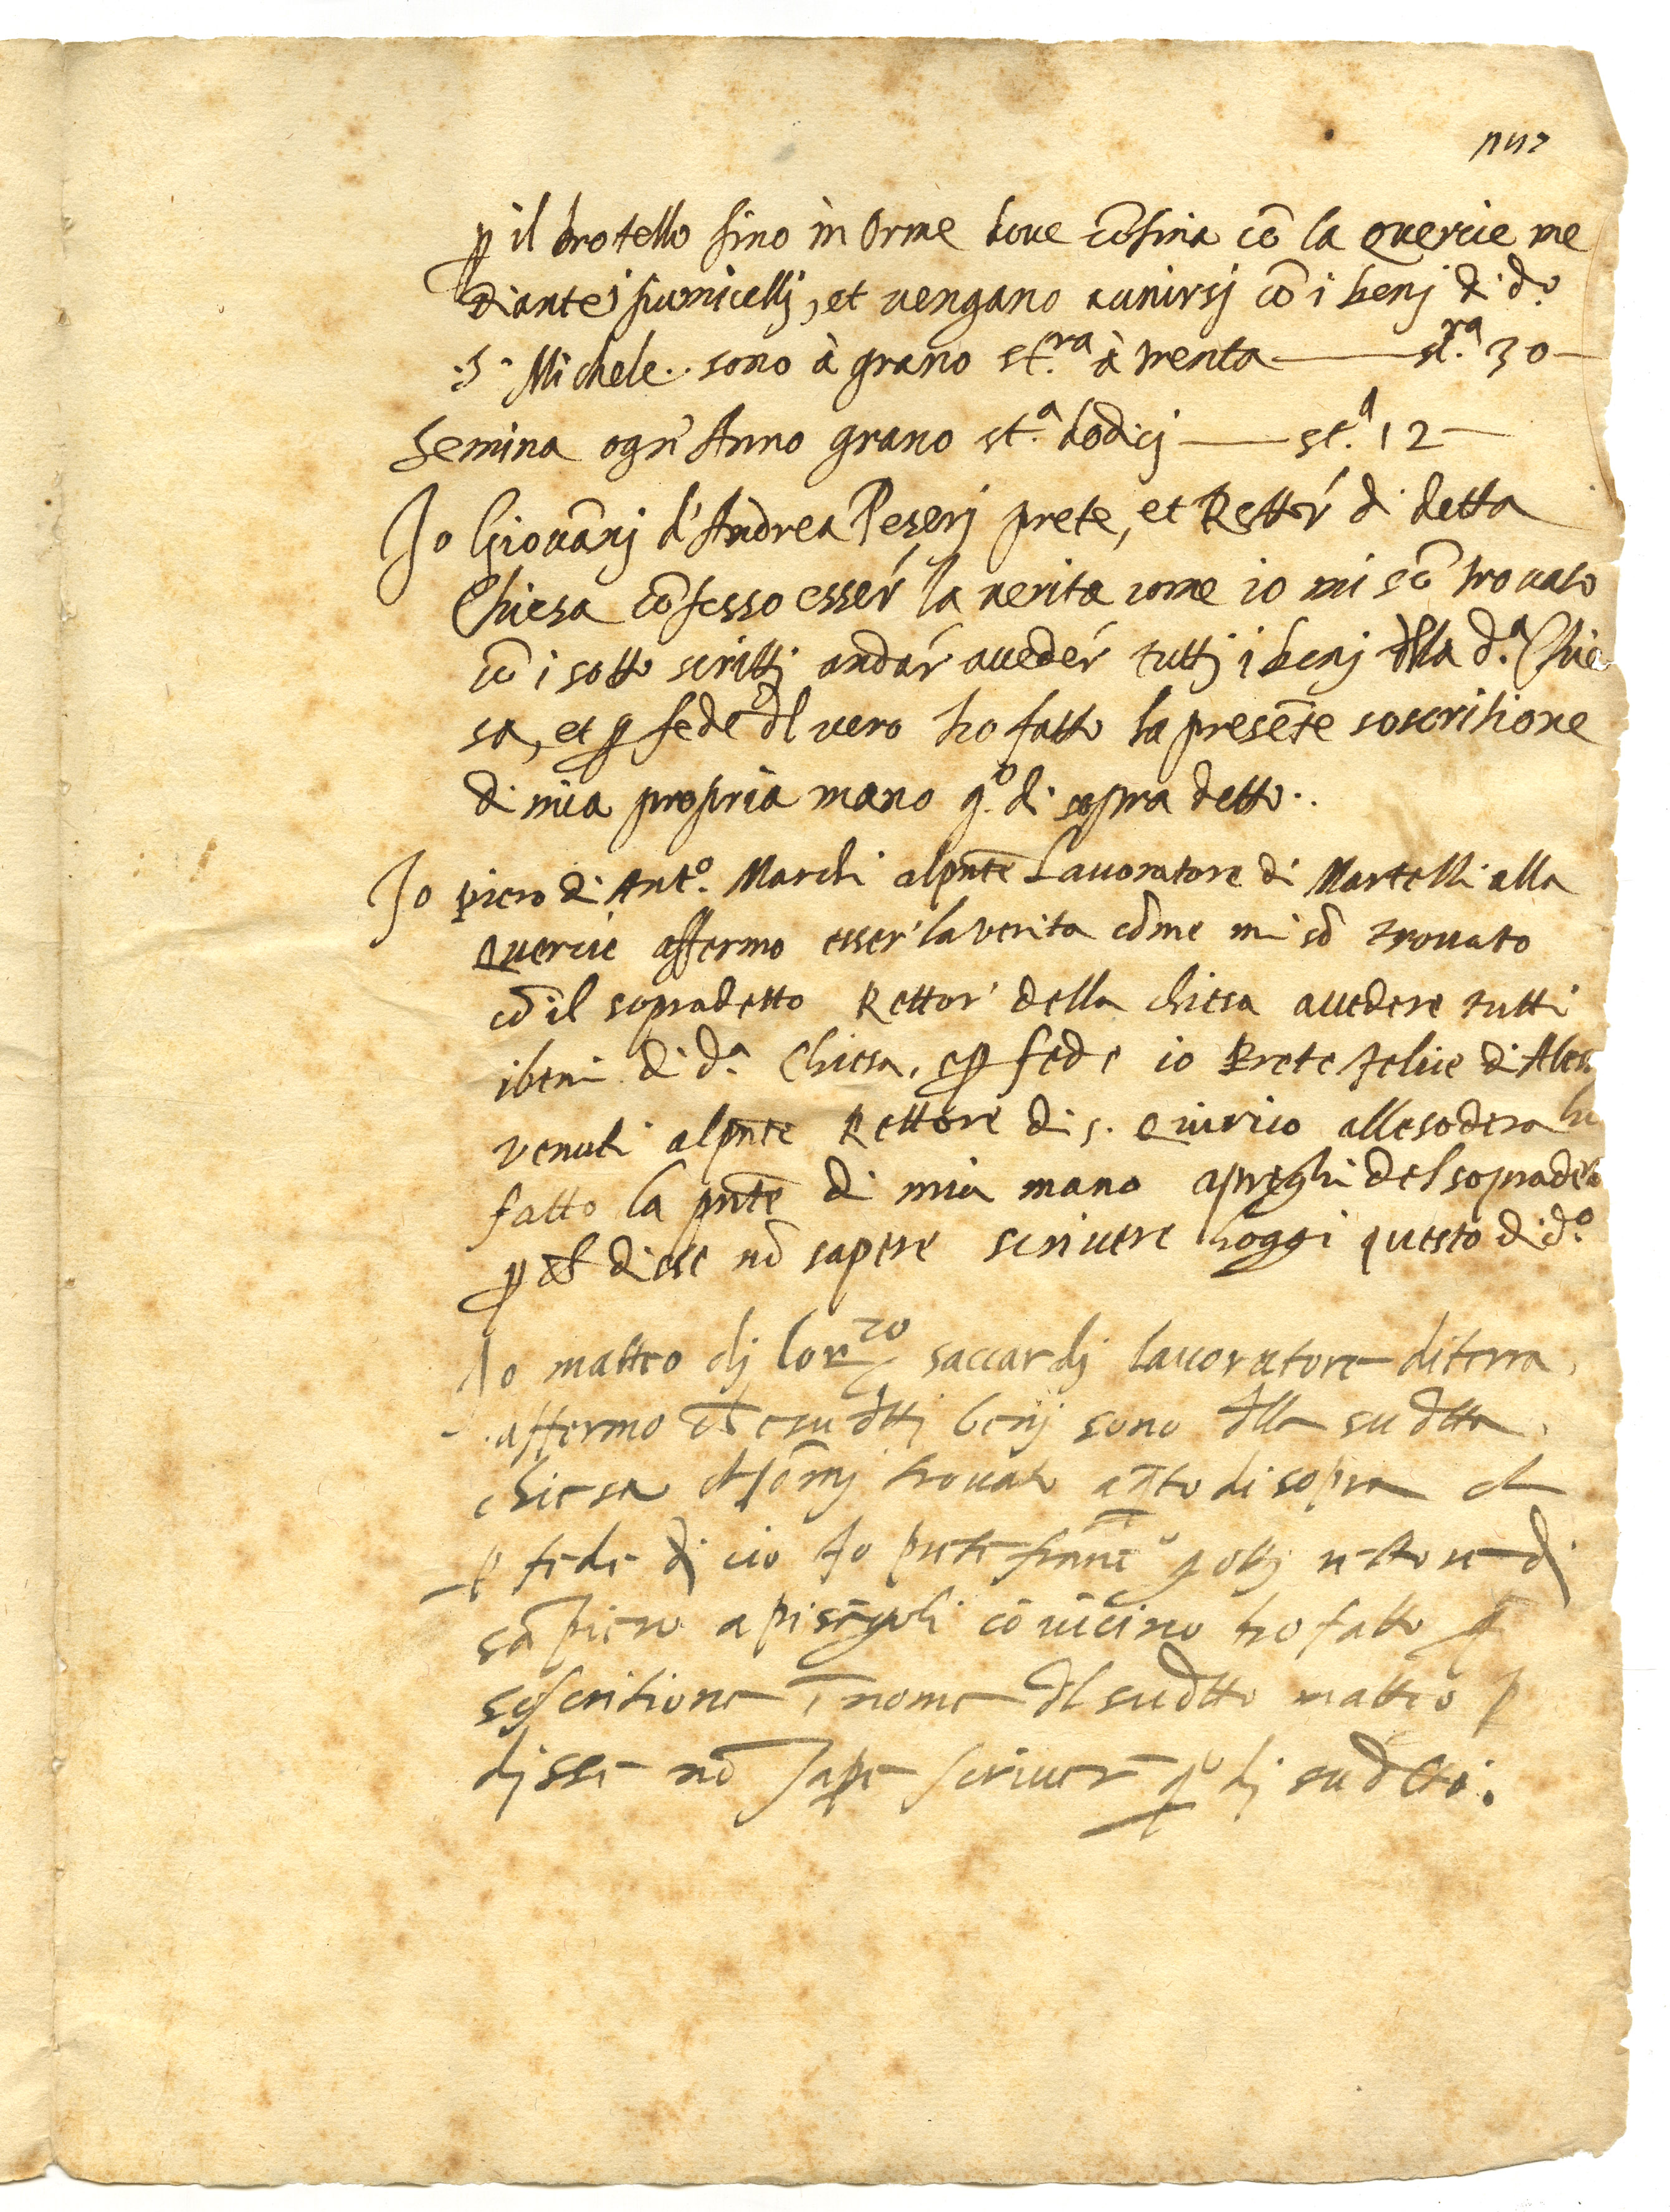 ꝑ il brotello fino in Orme doue cōfina cō la Quercie me
diante i fiumicellj, et uengano aunirsj cō i benj di d.º
.S. Michele.. sono à grano st.ra à trenta —— st.ra 30 —
Semina ogn' Anno grano st.a dodicj —— st.a 12 —
Io Giouānj d'Andrea Peserj prete, et Rettor' di detta
Chiesa cōfesso esser' la uerita come io mi sō trouato
cō i sotto scrittj andar' aueder' tuttj i benj dlla d.a Chie
sa, et ꝑ fede dl uero ho fatto la presēte soscritione
di mia propria mano q.º di sopra detto..
Io piero di Ant.º Marchi alpn̄te Lauoratore di Martelli alla
Quercie affermo esser' la verita cōme mi sō trouato
cō il sopradetto Rettor' della chiesa auedere tutti
ibeni di d.a Chiesa. e ꝑ fede io Prete felice di
venuti alpn̄te Rettore di s. Quirico allesodera
fatto la pn̄te di mia mano apreghi del sopradeto
ꝑ ch̄ disse nō sapere scriuere hoggi questo di d.º
Io matteo dj lor.zo saccardj lauoratore diterra
affermo ch̄ esudttj benj sono dlla sudtta
chiesa et sōmj trouato a qto di sopra et
ꝑ fede di cio Io prete franc.º gottj rettore di
sā piero a pisīgoli cō uicino ho fatto q
soscritione ī nome dl sudtto matteo ꝑ
djsse nō saper scriuer q.º dj sudetto.